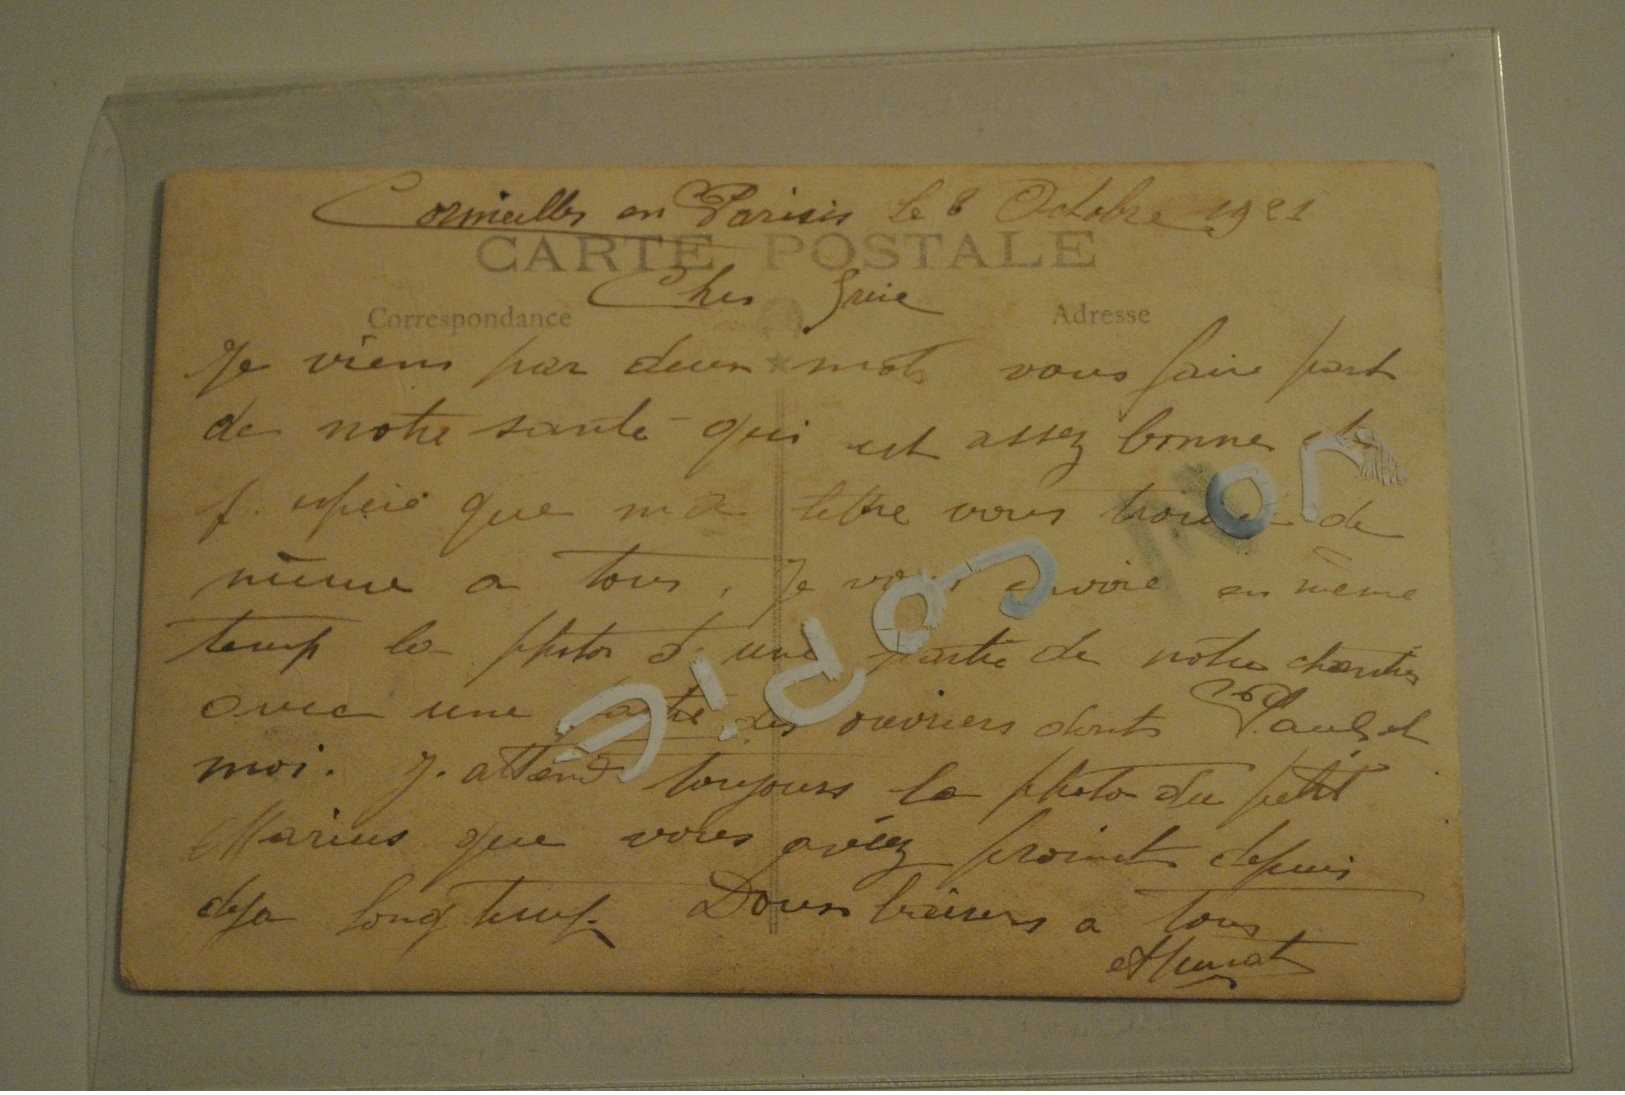 Cormeilles en Parisis le 8 Octobre 1921
CARTE POSTALE
Cher
Correspondance
Adresse
Je viens par deux mots vous faire part
de notre santé qui est assez bonne et
j. espere que ma lettre vous trouve de
même a tous. Je vous envoie en même
temp la photo d une partie de notre chantier
avec une partie des ouvriers dont Paul et
moi. J. attend toujours la photo du petit
Marius que vous aviez promit depuis
deja long temp Doux baisers a tous